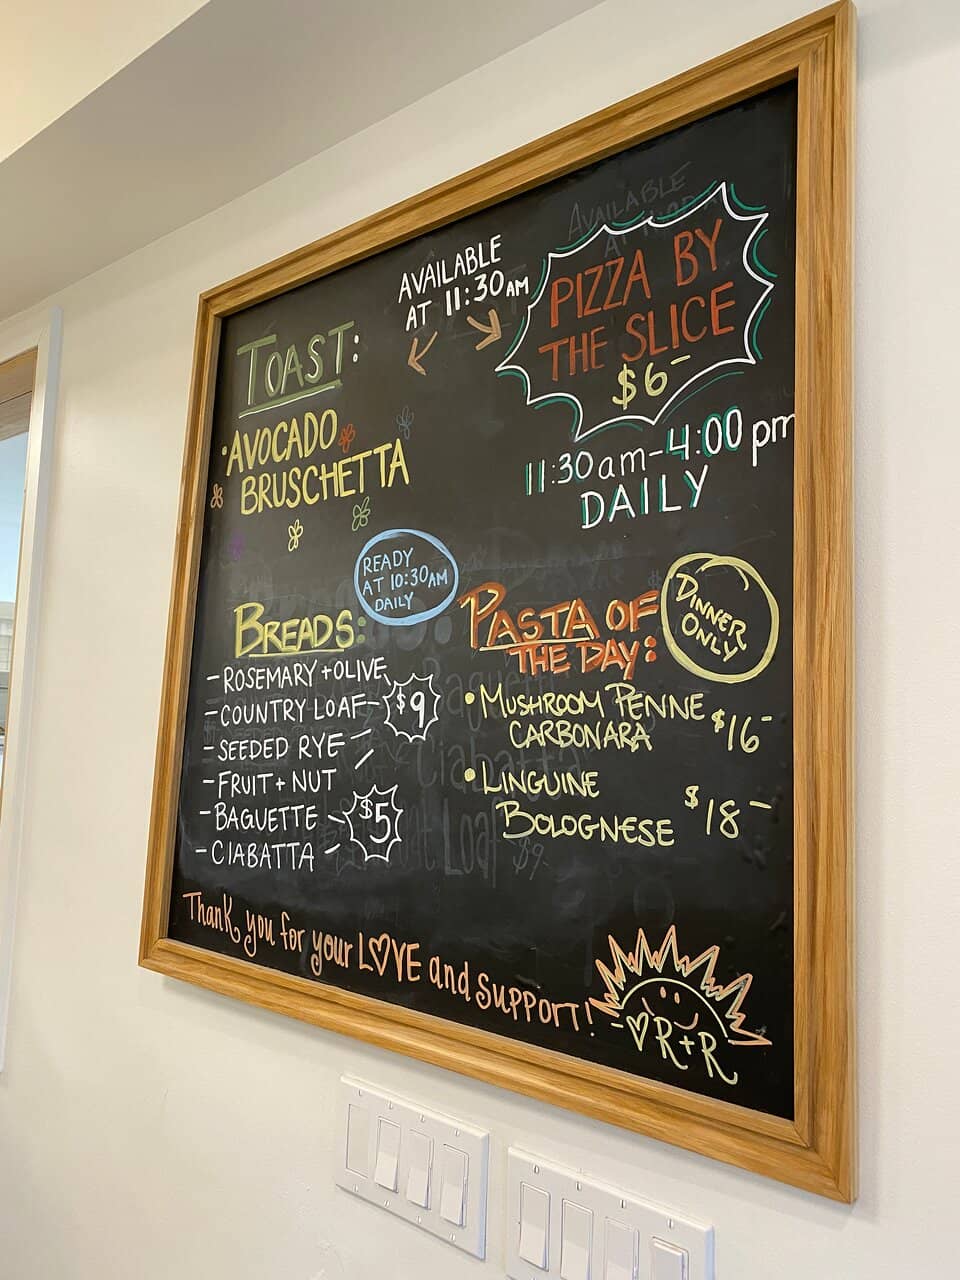 AVAILABLE
AT 11:30AM
TOAST:
•AVOCADO
BRUSCHETTA
AVAILABLE
PIZZA BY
THE SLICE
$6-
11:30am-4:00pm
DAILY
READY
AT 10:30AM
DAILY
BREADS:
-ROSEMARY+OLIVE
-COUNTRY LOAF-
-SEEDED RYE
-FRUIT+NUT
$9
-BAGUETTE
-CIABATTA
$5
PASTA OF
THE DAY:
DINNER
ONLY
•MUSHROOM PENNE
CARBONARA
$16-
•LINGUINE
BOLOGNESE
$18-
Ciabatta
Loaf $9-
Thank you for your L♡VE and SUPPORT!
-♡R+R